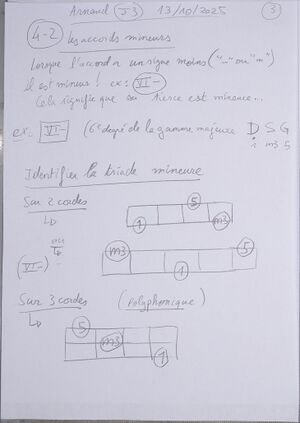 Arnaud J3 13/10/2025 3
4-2 Les accords mineurs
Lorsque l'accord a un signe moins ("-" ou "m")
il est mineur ! ex: VI-
Cela signifie que sa tierce est mineure...
ex: VI- (6e degré de la gamme majeure D S G
1 m3 5
Identifier la triade mineure
Sur 2 cordes
5
1 m3
(VI-)
m3 5
1
Sur 3 cordes (Polyphonique)
5
m3
1